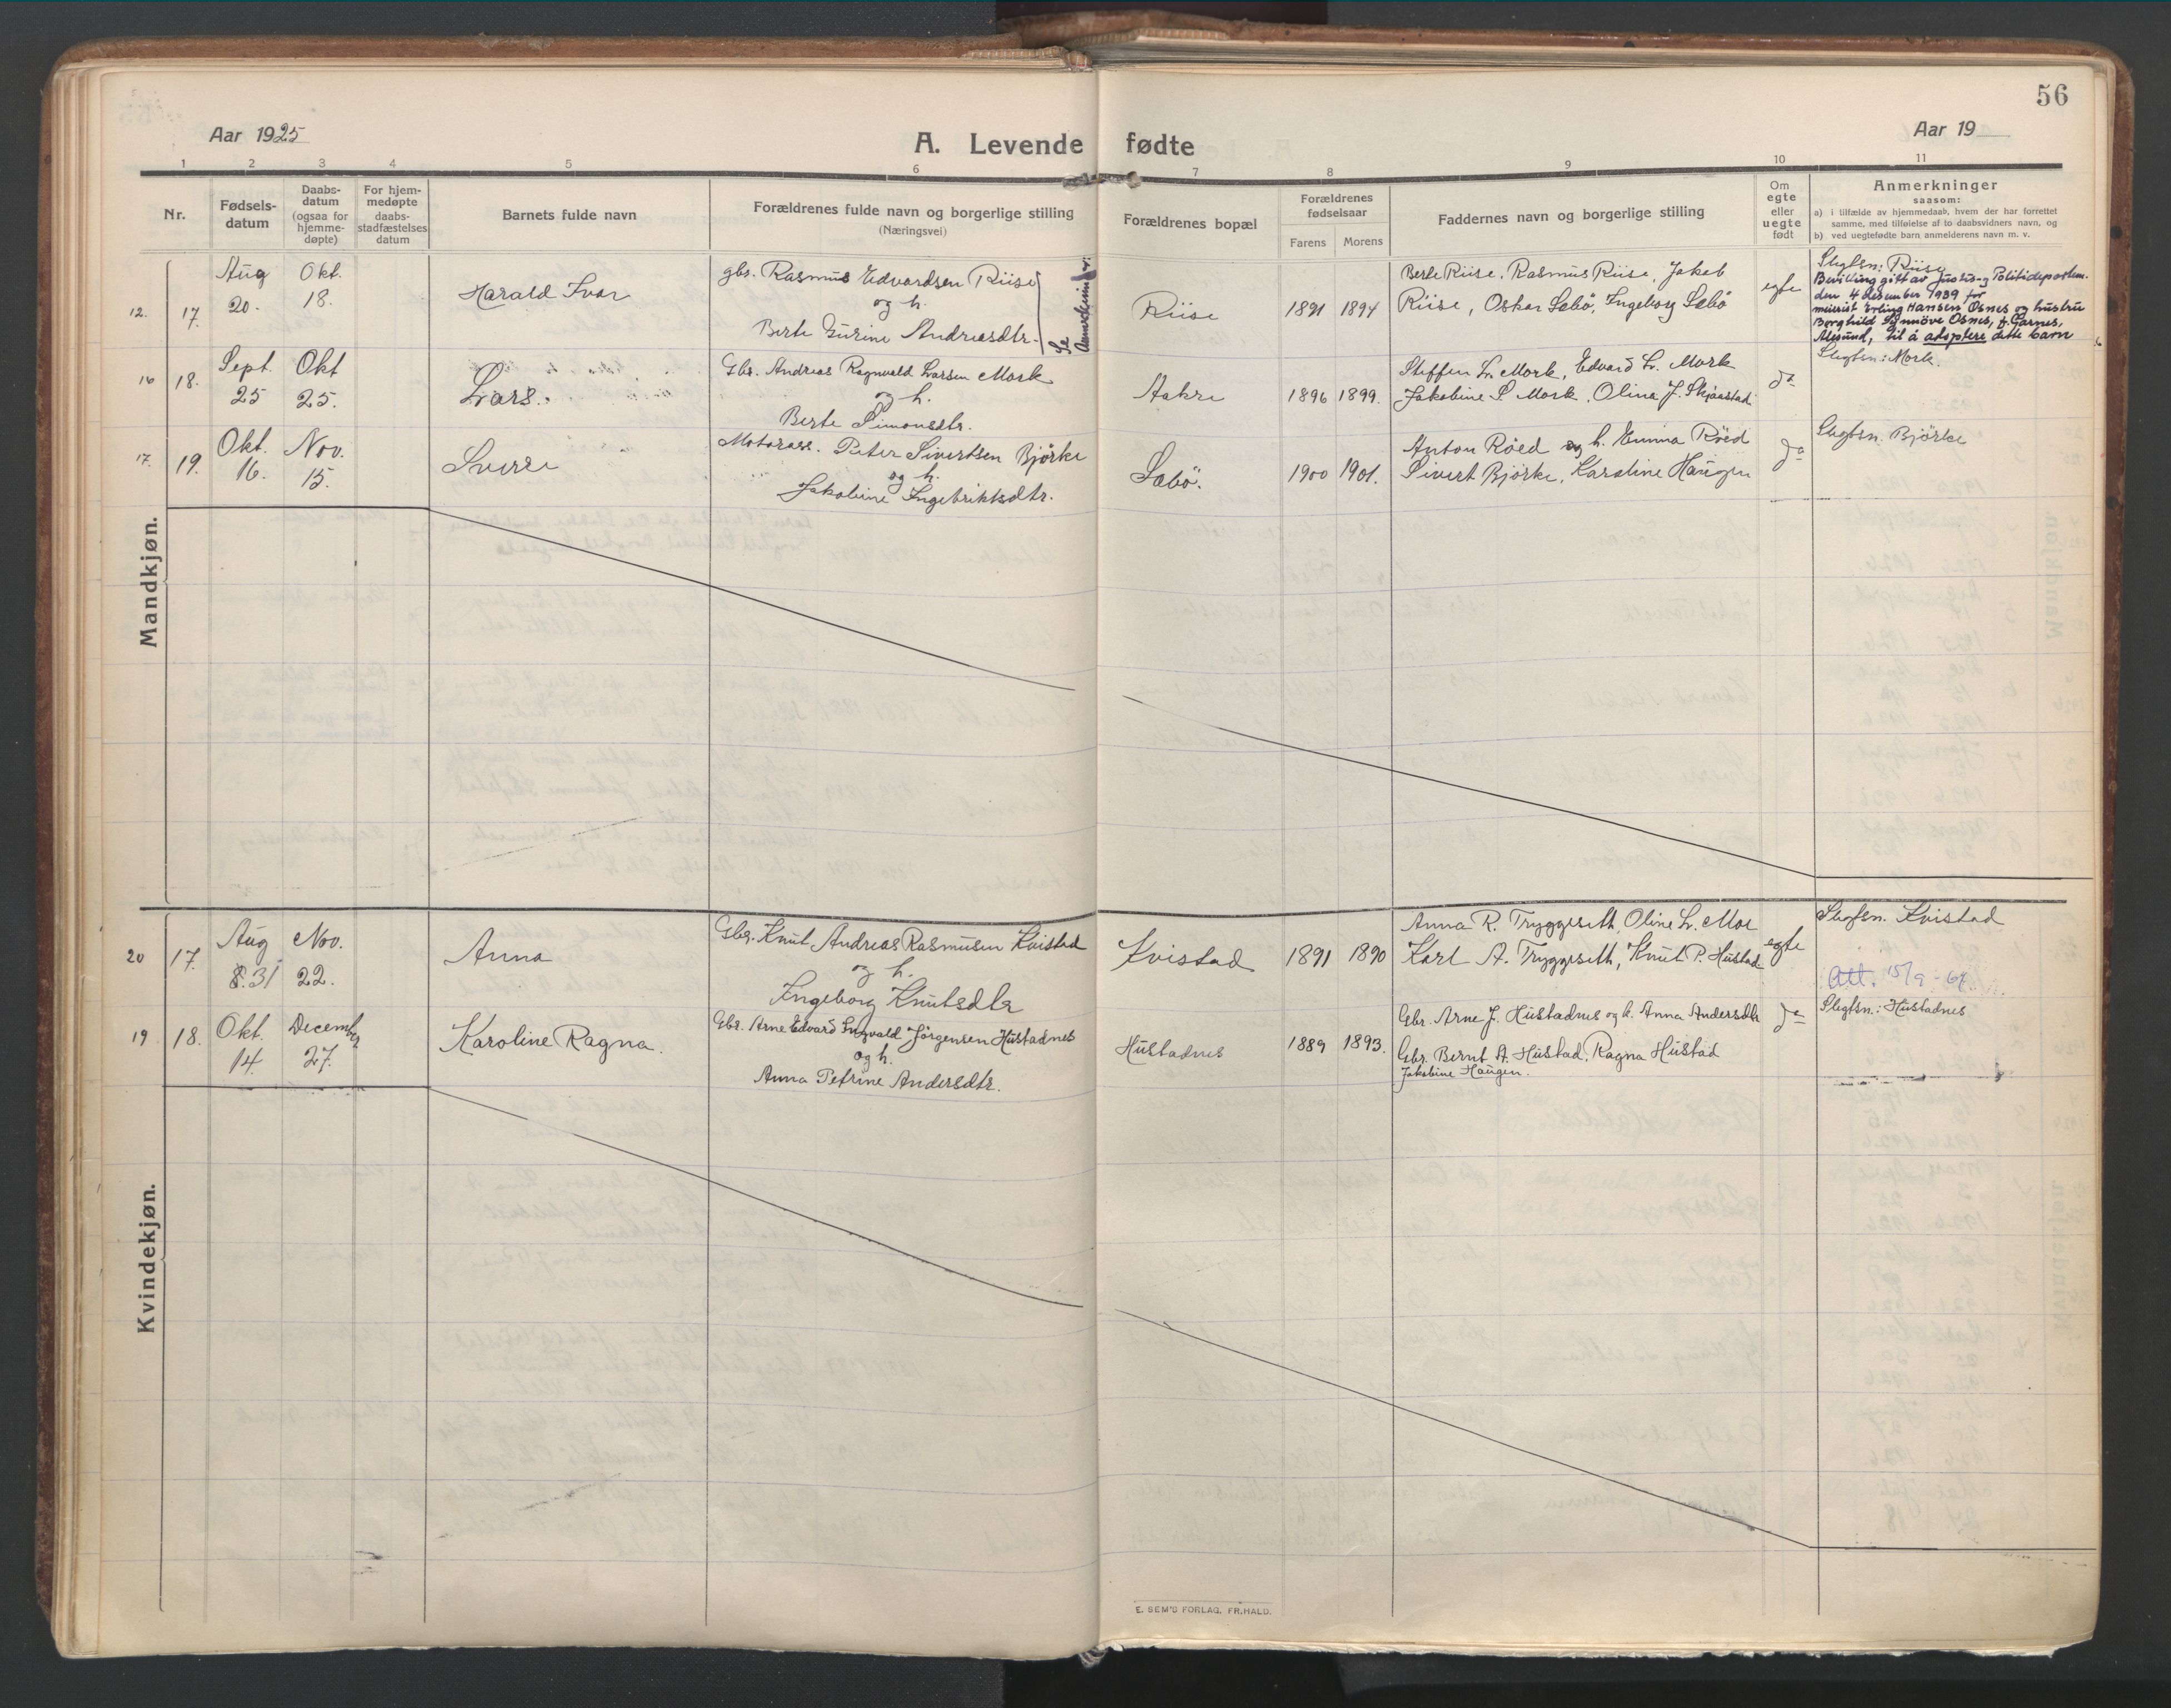 56
Aar 1925
A. Levende fødte
Aar 19
1 2 3 4 5 6 7 8 9 10 11
Nr.
Fødsels-
datum
Daabs-
datum
(ogsaa for
hjemme-
døpte)
For hjem-
medøpte
daabs-
stadfæstelses
datum
Barnets fulde navn
Forældrenes fulde navn og borgerlige stilling
(Næringsvei)
Forældrenes bopæl
Forældrenes
fødselsaar
Farens Morens
Faddernes navn og borgerlige stilling
Om
egte
eller
uegte
født
Anmerkninger
saasom:
a) i tilfælde av hjemmedaab, hvem der har forrettet
samme, med tilføielse af to daabsvidners navn, og
b) ved uegtefødte barn anmelderens navn m. v.
Mandkjøn.
12. 17.
Aug
20.
Okt.
18.
Harald Ivar
gbr. Rasmus Edvardsen Riise
og h.
Berte Gurine Andreasdtr.
Se
Riise
1891 1894
Berte Riise, Rasmus Riise, Jakob
Riise, Oskar Sæbø, Ingeborg Sæbø
egte
Slegtsn: Riise
Bevilling gitt av Justis- og Politidepartem.
den 4 desember 1939 for
meierist Erling Hansen Osnes og hustru
Borghild Synnöve Osnes, f. Garnes,
Alesund, til å adoptere dette barn
16 18.
Sept.
25
Okt
25.
Lars.
Gbr. Andreas Ragnvald Larsen Mork
og h.
Berte Simonsdtr.
Aakre
1896 1899.
Steffen L. Mork, Edvard L. Mork
Jakobine S Mork, Olina J. Skjaastad
do
Slegtsn: Mork.
17. 19.
Okt.
16.
Nov.
15.
Sverre
Motorass. Peter Sivertsen Björke
og h.
Jakobine Ingebriktsdtr.
Sæbö.
1900 1901.
Anton Röed og h. Emma Röed
Sivert Björke, Karoline Haugen
do
Slegtsn. Björke
Kvindekjøn.
20 17.
Aug
31
Nov.
22.
Anna
Gbr. Knut Andreas Rasmusen Kvistad
og h.
Ingeborg Knutsdtr
Kvistad
1891 1890
Anna R. Tryggeseth, Oline L. Moe
Karl A. Tryggeseth, Knut P. Hustad
egte
Slegtsn. Kvistad
Att. 15/9 - 67
19 18.
Okt.
14.
Decembr
27.
Karoline Ragna.
Gbr. Arne Edvard Ingvald Jörgensen Hustadnes
og h.
Anna Petrine Andersdtr.
Hustadnes
1889 1893.
Gbr. Arne J. Hustadnes og h. Anna Andersdtr
Gbr. Bernt A. Hustad, Ragna Hustad
Jakobine Haugen.
do
Slegtsn.: Hustadnes
E. SEM'S FORLAG, FR.HALD.